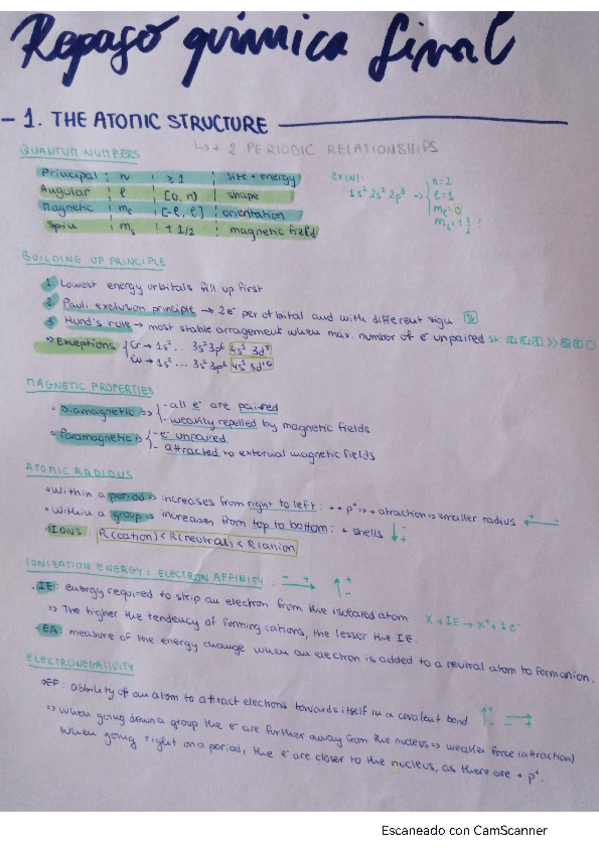 Repaso química final
- 1. THE ATOMIC STRUCTURE
↳ + 2 PERIODIC RELATIONSHIPS
QUANTUM NUMBERS
Principal | n | ≥ 1 | size + energy
Angular | ℓ | [0, n) | shape
Magnetic | mℓ | [-ℓ, ℓ] | orientation
Spin | ms | ± 1/2 | magnetic field
1s² 2s² 2p³ → { n = 2
ℓ = 1
mℓ = 0
ms = ± 1/2
BUILDING UP PRINCIPLE
1 Lowest energy orbitals fill up first
2 Pauli exclusion principle → 2e⁻ per orbital and with different sign
3 Hund's rule → most stable arragement when max. number of e⁻ unpaired
⇒ Exceptions { Cr → 1s² ... 3s² 3p⁶ 4s¹ 3d⁵
Cu → 1s² ... 3s² 3p⁶ 4s¹ 3d¹⁰
MAGNETIC PROPERTIES
• Diamagnetic ⇒ { - all e⁻ are paired
- weakly repelled by magnetic fields
• Paramagnetic ⇒ { - e⁻ unpaired
- attracted to external magnetic fields
ATOMIC RADIOUS
• Within a period ⇒ increases from right to left : ++ p⁺ ⇒ + atraction ⇒ smaller radius ←
• Within a group ⇒ increases from top to bottom : + shells ↓
• IONS R(cation) < R(neutral) < R(anion)
IONIZATION ENERGY = ELECTRON AFFINITY : - + → + ↑ -
• IE : energy required to strip an electron from the isolated atom : X + IE → X⁺ + 1e⁻
⇒ The higher the tendency of forming cations, the lesser the IE.
• EA : measure of the energy change when an electron is added to a neutral atom to form anion.
ELECTRONEGATIVITY
DEF : ability of an atom to attract elections towards itself in a covalent bond
⇒ When going down a group the e⁻ are further away from the nucleus ⇒ weaker force (attraction)
When going right on a period, the e⁻ are closer to the nucleus, as there are + p⁺.
Escaneado con CamScanner